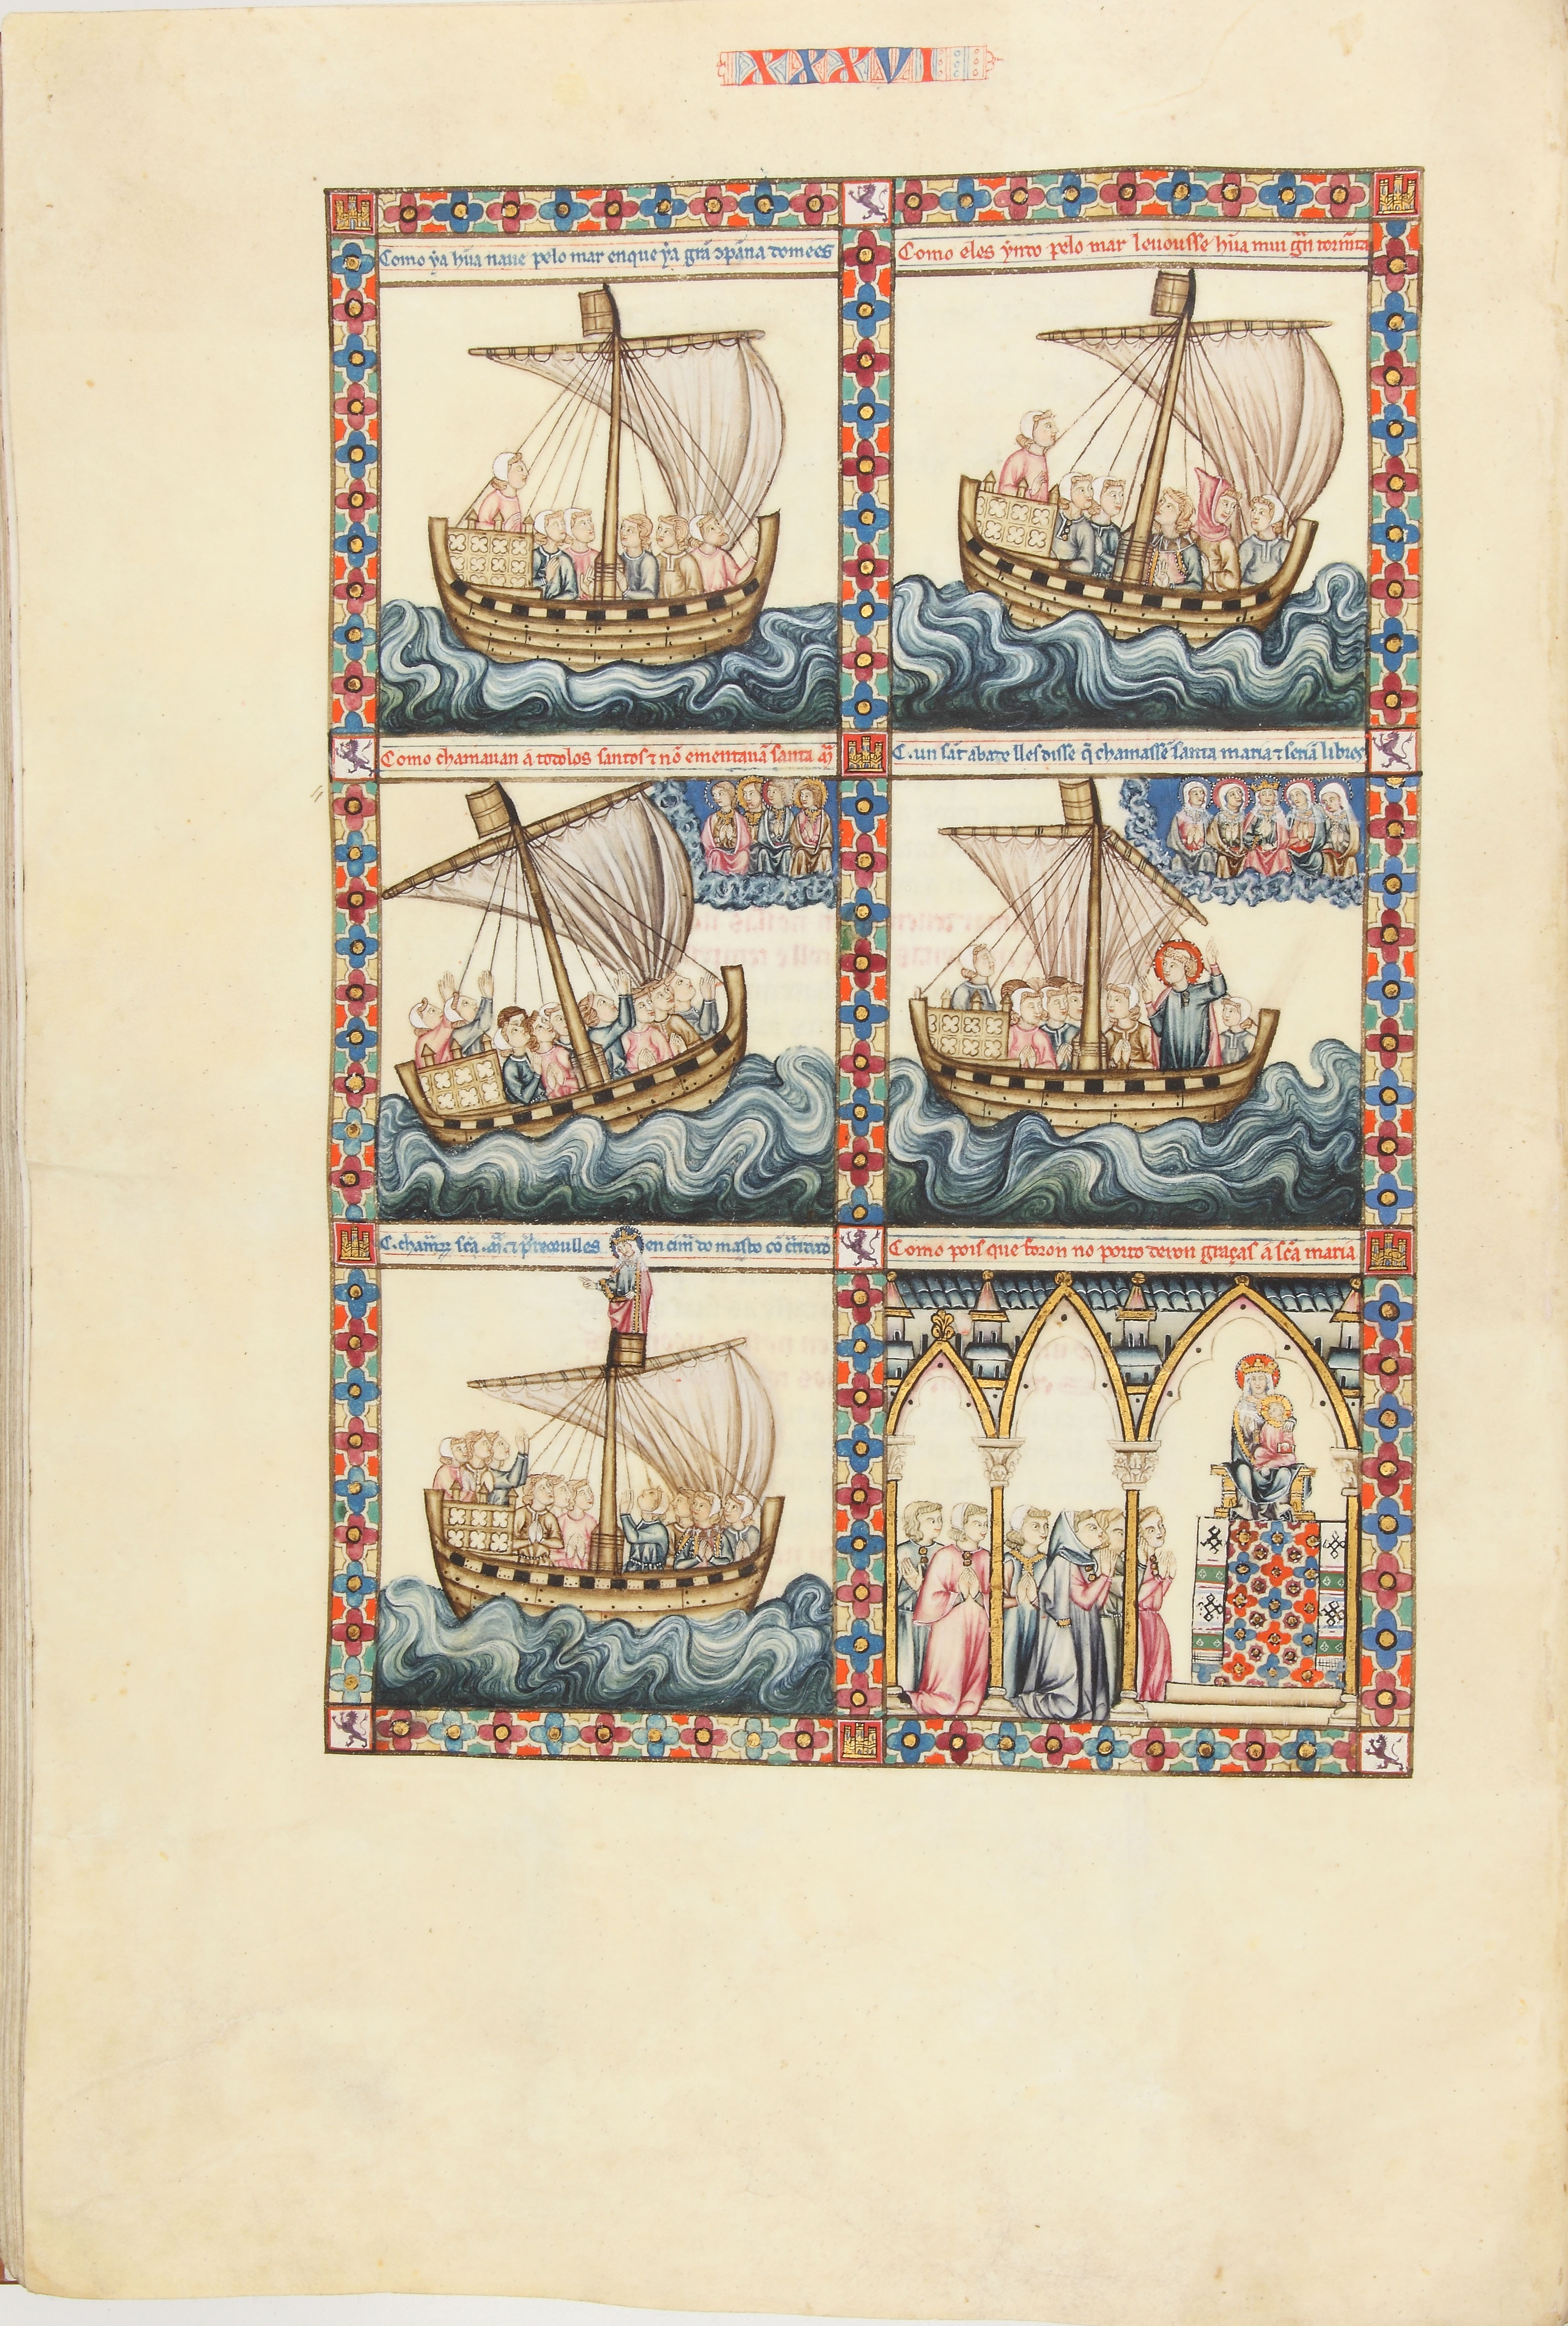 XXXVI
Como ya hũa naue pelo mar enque ya grã ꝯpãna domees
Como eles ynto pelo mar leuousse hũa mui gñ tormẽta
Como chamauan a todolos santos ⁊ nõ ementauã santa m̃
C. un sãt abade lles disse q̃ chamassẽ santa maria ⁊ seriã libres
C. scã m̃ ⁊ lles en cim̃ do masto cõ
Como pois que foron no porto deron graças a scã maria